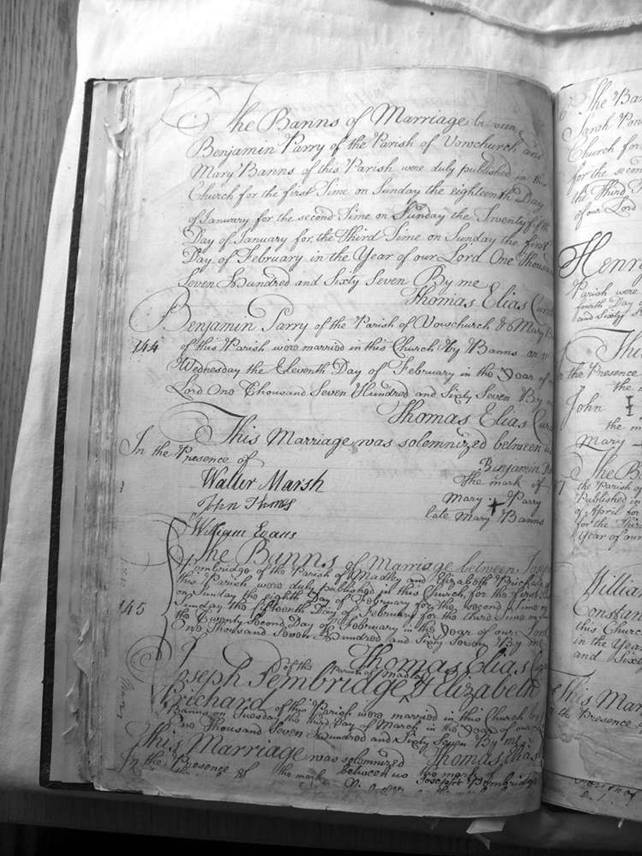 The Banns of Marriage between
Benjamin Parry of the Parish of Vowchurch and
Mary Banns of this Parish were duly published in this
Church for the first Time on Sunday the eighteenth Day
of January for the second Time on Sunday the Twentyfifth
Day of January for the Third Time on Sunday the first
Day of February in the Year of our Lord One Thousand
Seven Hundred and Sixty Seven By me
Thomas Elias
Benjamin Parry of the Parish of Vowchurch & Mary
144
of this Parish were married in this Church by Banns on
Wednesday the Eleventh Day of February in the Year of
Lord One Thousand Seven Hundred and Sixty Seven By
Thomas Elias
This Marriage was solemnized between
In the Presence of
Benjamin
Walter Marsh
The mark of
John
Mary + Parry
late Mary Banns
William Evans
The Banns of Marriage between
Pembridge of the Parish of Madley and Elizabeth
this Parish were duly published in this Church for the first
on Sunday the eighth Day of February for the second Time on
145
Sunday the fifteenth Day of February for the third Time on
the Twenty Second Day of February in the Year of our Lord
One Thousand Seven Hundred and Sixty Seven By me
Thomas Elias
of the Parish of Madley
Joseph Pembridge & Elizabeth
Prichard of this Parish were married in this Church by
Banns on Tuesday the third Day of March in the Year of our
One Thousand Seven Hundred and Sixty Seven By me
This Marriage was solemnized Thomas Elias
In the Presence of between us the mark of
the mark Joseph Pembridge
The Ban
Sarah
Church for
for the second
the Third
of our Lord
Henry
Parish were
fourth Day
and Sixty
This
the Presence
the
John
the m
Mary
The B
the Parish of
Published in
of April for
for the Third
Year of our
William
Constan
this Church
in the Year
and Sixty
This Mar
the Presence